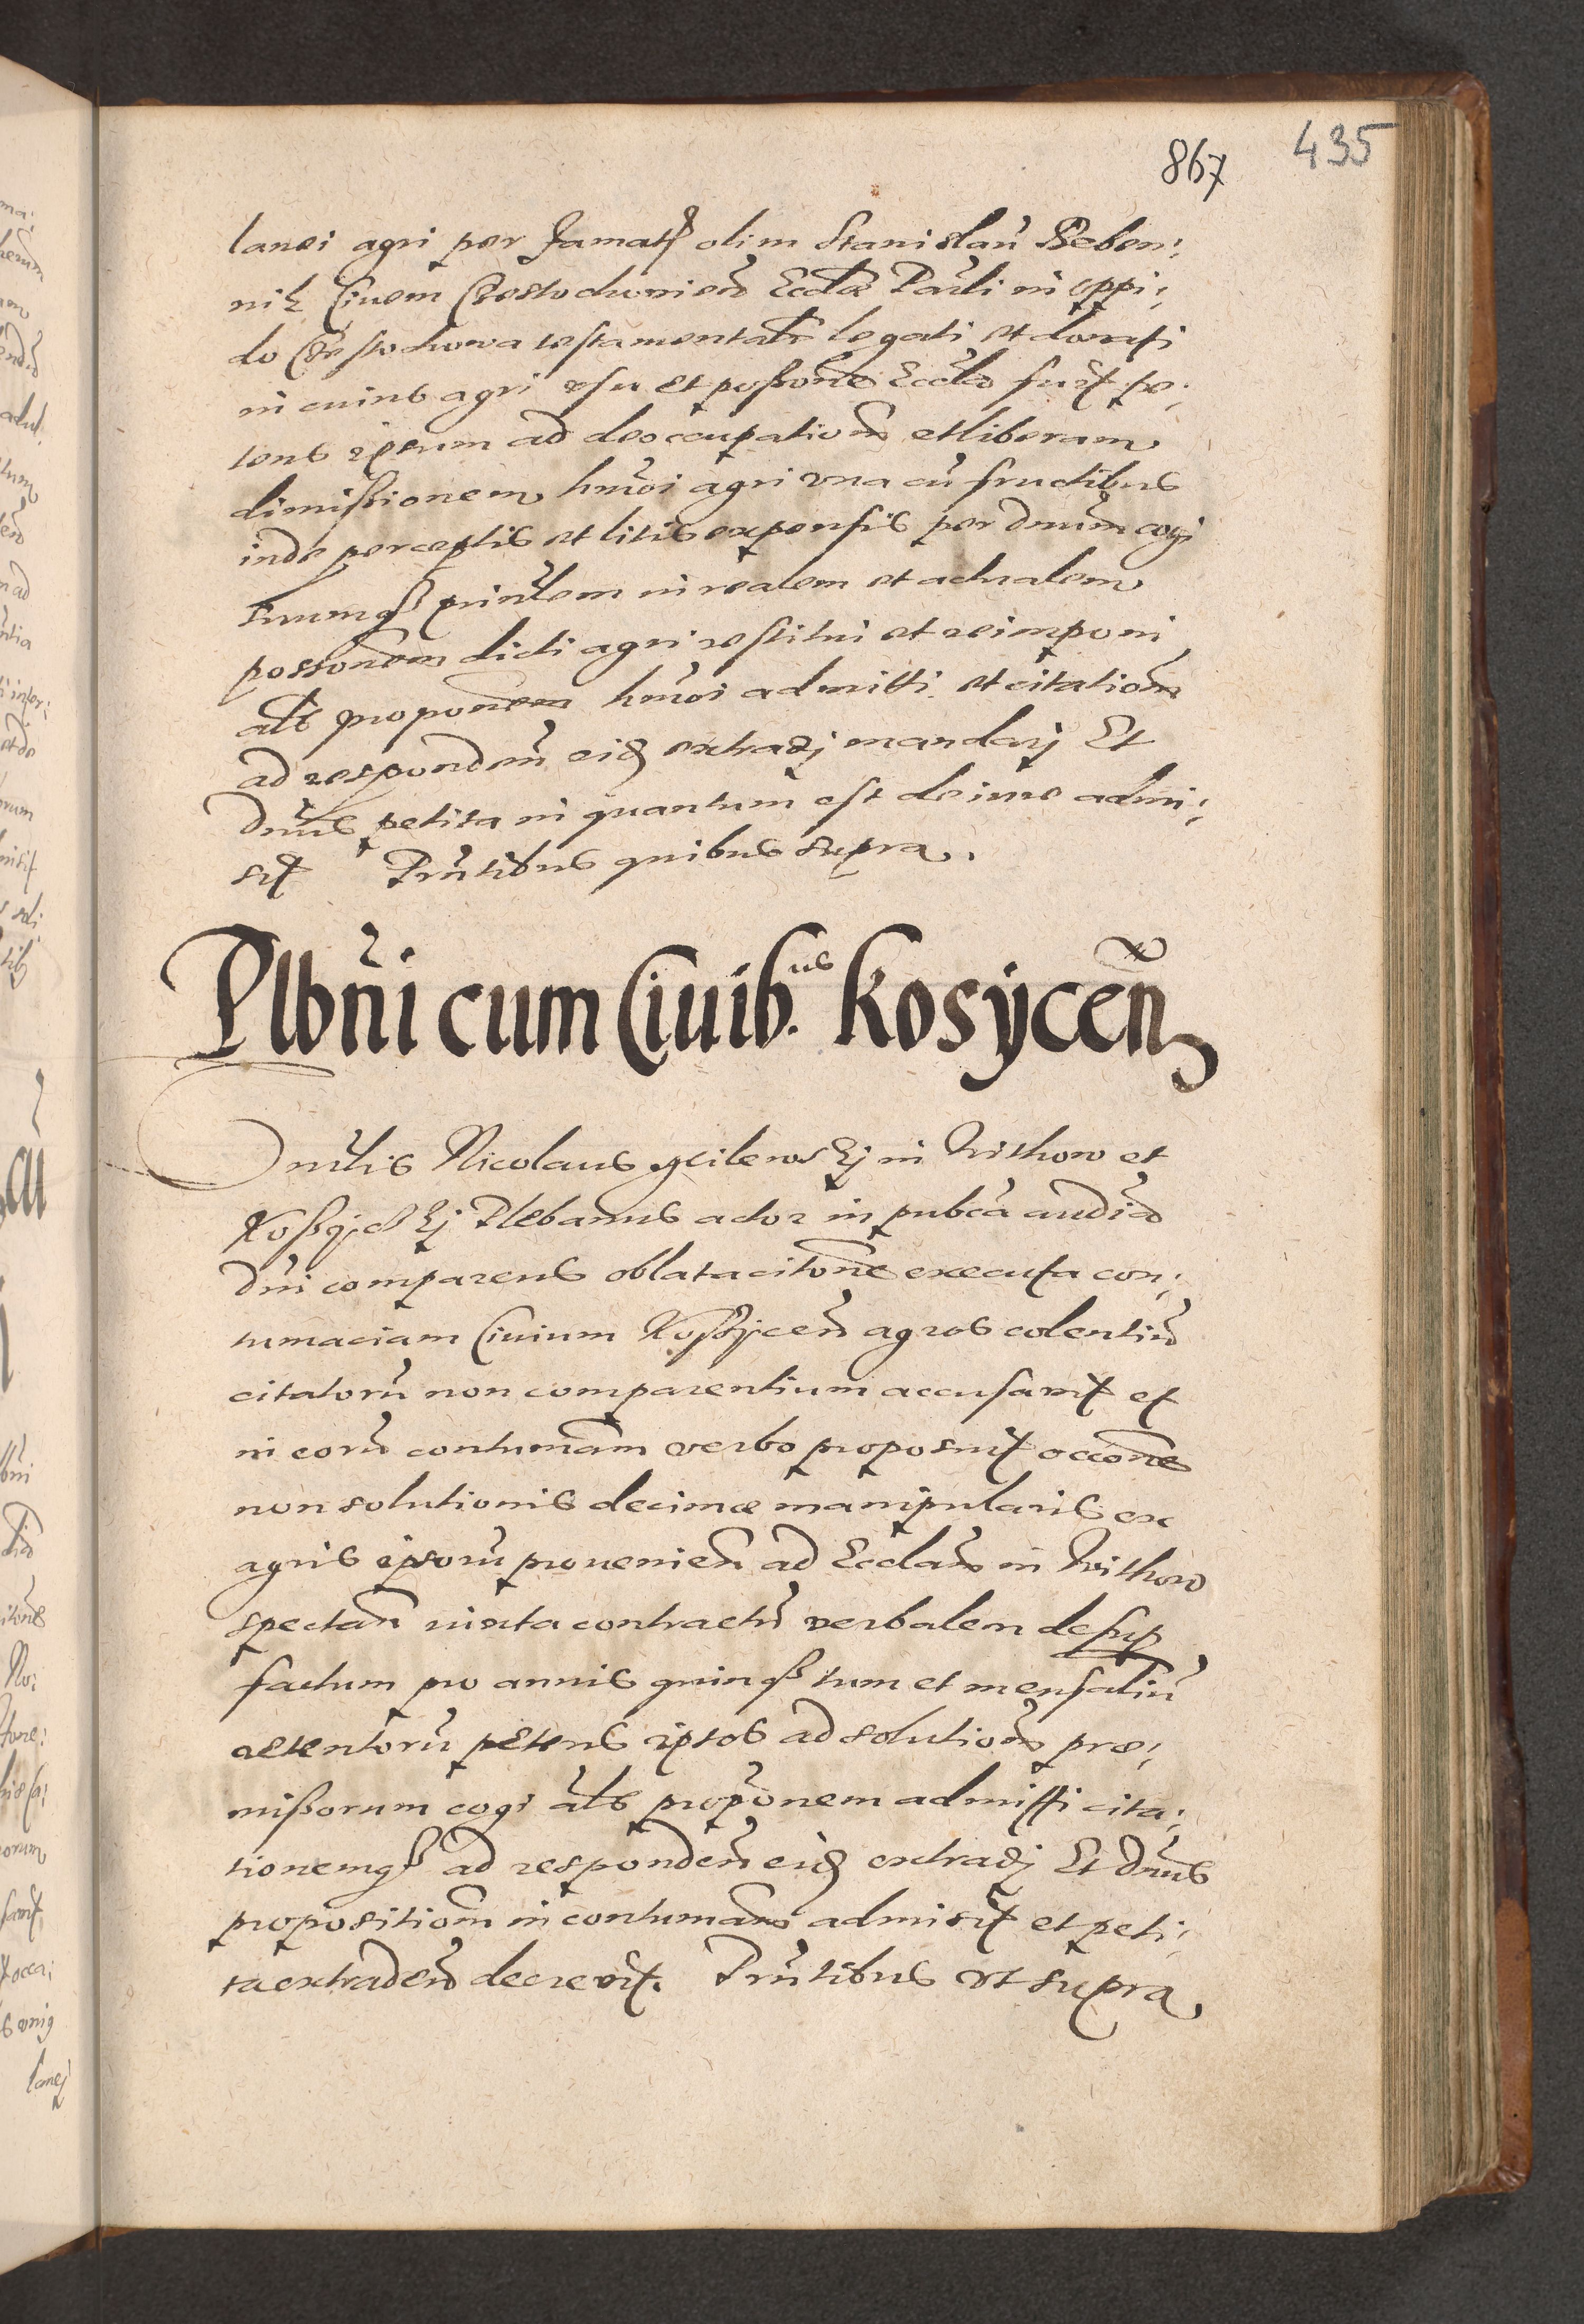 867 435
lanei agri per famatu olim Stanislau Beben:
nik Ciuem Czestochouien Eccliæ Pauli in oppi:
do Czestochowa testamentalr legati et donati
in cuius agri vsu et possone Ecclia fuit pe:
tens ipsum ad deoccupationem et liberam
dimissionem hmoi agri vna cu fructibus
inde perceptis et litis expensis per dnum cogi
suumq prinlem in realem et actualem
possonem dicti agri restitui et reimponi
als proponem hmoi admitti et citationem
ad responden eid extradj mandarj Et
dnus petita in quantum est de iure admi:
sit Prntibus quibus supra.
Plbni cum Ciuib.us Kosycen
Onrlis Nicolaus in Withow et
Plebanus actor in pubca audia
dni comparens oblata citone executa con:
tumaciam Ciuium Kossycen agros colentiu
citatoru non comparentium accusauit et
in eoru contumam verbo proposuit occone
non solutionis decimæ manipularis ex
agris ipsoru prouenien ad Eccliam in Withow
spectan iuxta contractu verbalem desup
factum pro annis quinq tum et mensaliu
retentoru petens ipsos ad solutionem præ:
missorum cogi als proponem admitti cita:
tionemq ad responden eid extradj Et Dnus
propositionem in contumam admisit et peti:
ta extraden decreuit. Prntibus vt supra